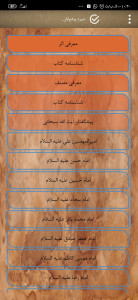 سیره پیشوایان
معرفی اثر
شناسنامه کتاب
معرفی مصنف
شناسنامه کتاب
پیشگفتار آیت الله سبحانی
امیرالمومنین علی علیه السلام
امام حسن علیه السلام
امام حسین علیه السلام
امام سجاد علیه السلام
امام محمد باقر علیه السلام
امام جعفر صادق علیه السلام
امام موسی کاظم علیه السلام
امام رضا علیه السلام